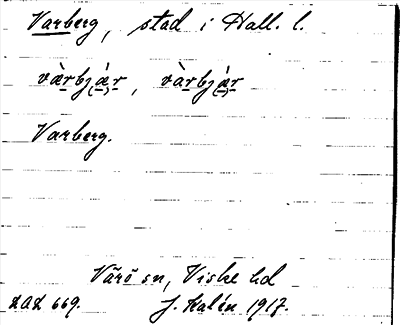 Varberg, stad i Hall. l.
vàrbj(ä)r, vàrbj(ä)r
Varberg.
Värö sn, Viske hd
LAL 669. J. Kalén 1917.